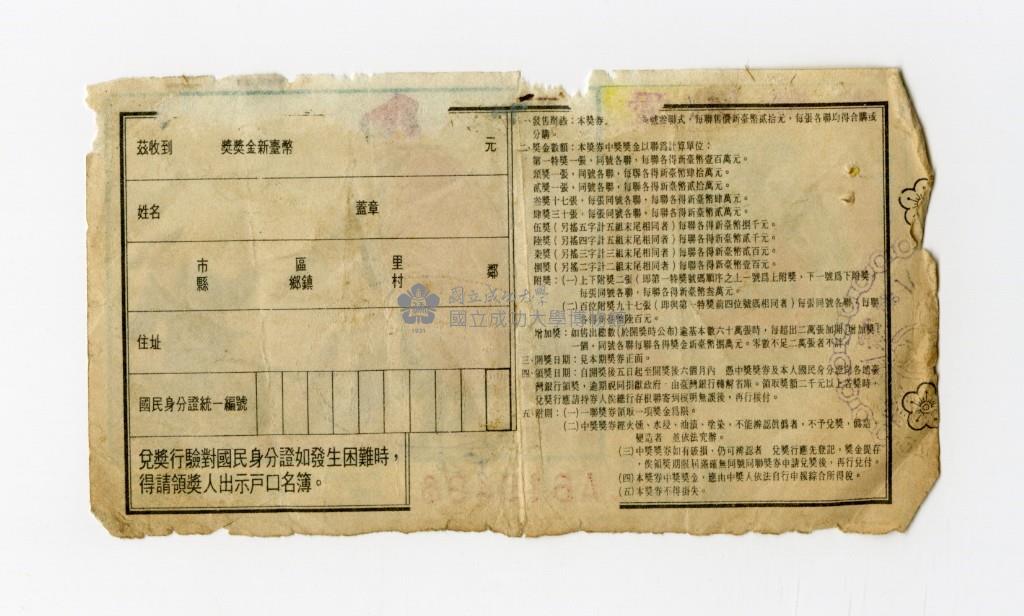 茲收到 獎獎金新臺幣 元
姓名 蓋章
市 區 里 鄰
縣 鄉鎮 村
住址
國民身分證統一編號
兌獎行驗對國民身分證如發生困難時，
得請領獎人出示戶口名簿。
一、發售辦法：本獎券 號叁聯式，每聯售價新臺幣貳拾元，每張各聯均得合購或
分購。
二、獎金數額：本獎券中獎獎金以聯爲計算單位：
第一特獎一張，同號各聯，每聯各得新臺幣壹百萬元。
頭獎一張，同號各聯，每聯各得新臺幣肆拾萬元。
貳獎一張，同號各聯，每聯各得新臺幣貳拾萬元。
叁獎十七張，每張同號各聯，每聯各得新臺幣肆萬元。
肆獎三十張，每張同號各聯，每聯各得新臺幣貳萬元。
伍獎（另搖五字計五組末尾相同者）每聯各得新臺幣捌千元。
陸獎（另搖四字計五組末尾相同者）每聯各得新臺幣貳千元。
柒獎（另搖三字計三組末尾相同者）每聯各得新臺幣貳百元。
捌獎（另搖二字計二組末尾相同者）每聯各得新臺幣壹百元。
附獎：（一）上下附獎二張（即第一特獎號碼順序之上一號爲上附獎，下一號爲下附獎，
每張同號各聯，每聯各得新臺幣叁萬元。
（二）百位附獎九十七張（即與第一特獎前四位號碼相同者）每張同號各聯，每聯
各得新臺幣陸百元。
增加獎：如售出總數（於開獎時公布）逾基本數六十萬張時，每超出二萬張加開 增加獎
一個，同號各聯每聯各得獎金新臺幣捌萬元。零數不足二萬張者不計。
三、開獎日期：見本期獎券正面。
四、領獎日期：自開獎後五日起至開獎後六個月內 憑中獎獎券及本人國民身分證向各地臺
灣銀行領獎，逾期視同捐獻政府 由臺灣銀行轉解省庫。領取獎額二千元以上各獎時，
兌獎行應請持券人俟總行存根聯寄到核明無誤後，再行按付。
五、附則：（一）一聯獎券領取一項獎金爲限。
（二）中獎獎券經火燻、水浸、油漬、塗染，不能辨認眞僞者，不予兌獎，僞造、
變造者 並依法究辦。
（三）中獎獎券如有破損，仍可辨認者 兌獎行應先登記，獎金提存
，俟領獎期限屆滿確無同號同聯獎券申請兌獎後，再行兌付。
（四）本獎券中獎獎金，應由中獎人依法自行申報綜合所得稅。
（五）本獎券不得掛失。
國立成功大學
國立成功大學博物館
1931